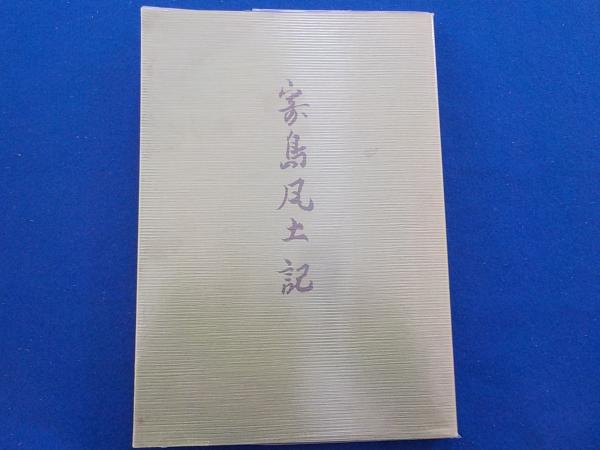 寄島風土記